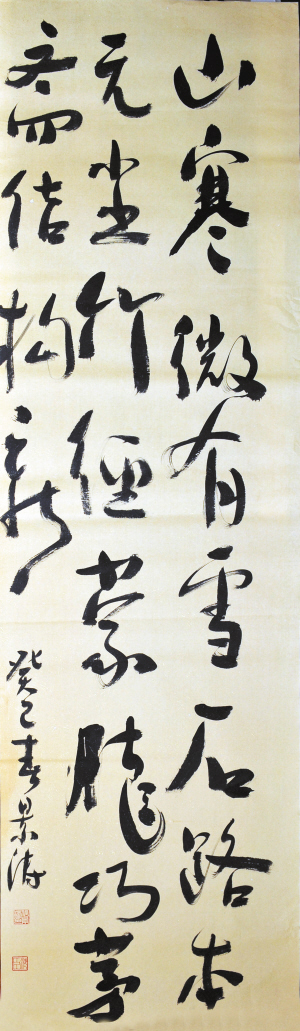 山寒微有雪石路本
无尘竹径蒙朧巧茅
斋结构新
癸巳春景涛